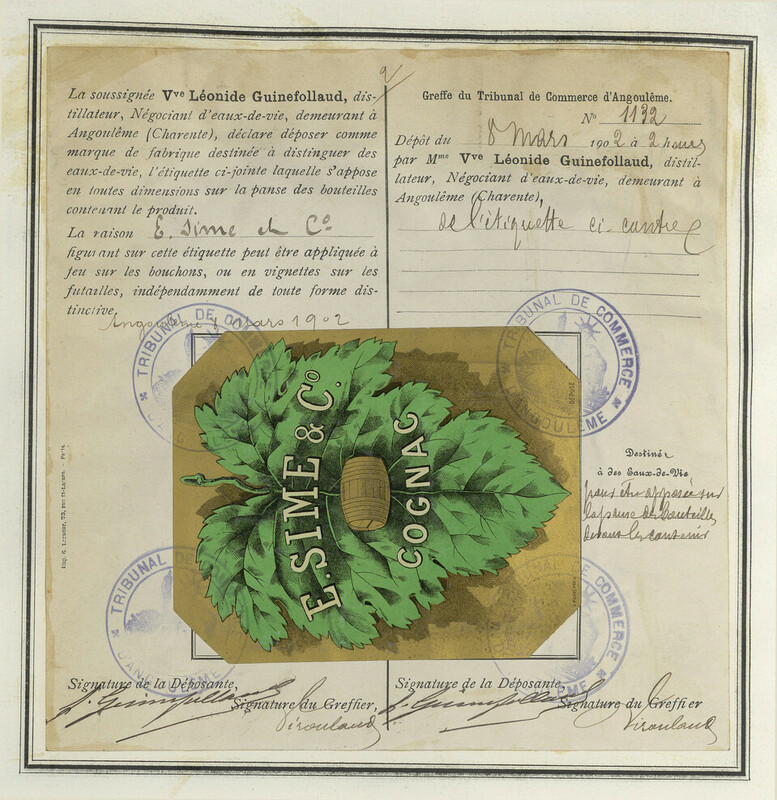 La soussignée Vve Léonide Guinefollaud, dis-
tillateur, Négociant d'eaux-de-vie, demeurant à
Angoulême (Charente), déclare déposer comme
marque de fabrique destinée à distinguer des
eaux-de-vie, l'étiquette ci-jointe laquelle s'appose
en toutes dimensions sur la panse des bouteilles
contenant le produit.
La raison E. Sime et Co
figurant sur cette étiquette peut être appliquée à
feu sur les bouchons, ou en vignettes sur les
futailles, indépendamment de toute forme dis-
tinctive.
Angoulême 8 Mars 1902
Greffe du Tribunal de Commerce d'Angoulême.
No 1132
Dépôt du 8 Mars 1902 à 2 heures
par Mme Vve Léonide Guinefollaud, distil-
lateur, Négociant d'eaux-de-vie, demeurant à
Angoulême (Charente),
de l'étiquette ci-contre
TRIBUNAL DE COMMERCE
D'ANGOULÊME
TRIBUNAL DE COMMERCE
D'ANGOULÊME
E. SIME & Co.
COGNAC
DÉPOSÉ
Destinée
à des Eaux-de-Vie
pour être apposée sur
la panse de bouteilles
devant les contenir
TRIBUNAL DE COMMERCE
D'ANGOULÊME
TRIBUNAL DE COMMERCE
D'ANGOULÊME
Signature de la Déposante,
Signature du Greffier,
Signature de la Déposante,
Signature du Greffier